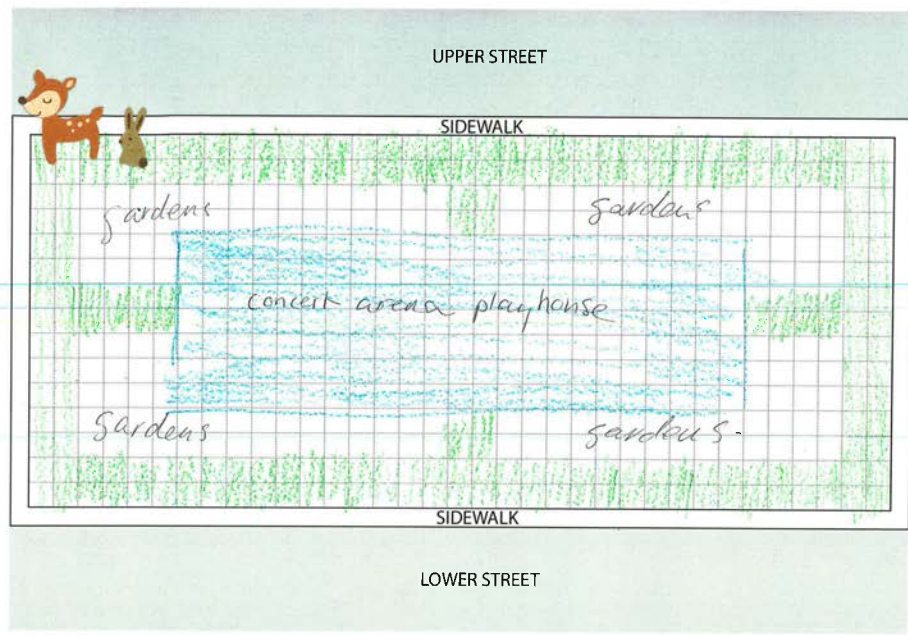 UPPER STREET
SIDEWALK
gardens gardens
concert arena playhouse
gardens gardens
SIDEWALK
LOWER STREET